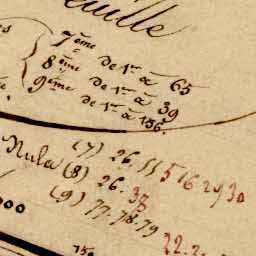 euille
7ème de 1r à 65
8ème de 1r à 39
9ème de 1r à 136.
Nula (7) 26. 55 5 16 29 30
(8) 26. 38
(9) 77. 78. 79 22. 2
000